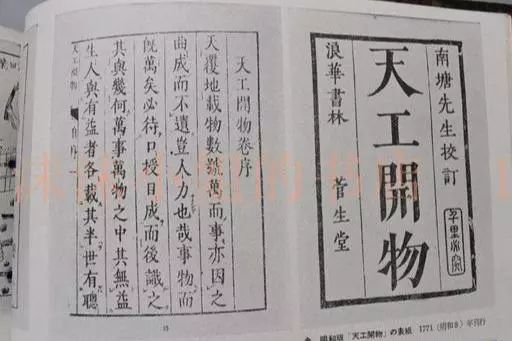 南塘先生校訂
天工開物
浪華書林 菅生堂
千里必究
天工開物卷序
天覆地載物數號萬而事亦因之
曲成而不遺豈人力也哉事物而
既萬矣必待口授目成而後識之
其與幾何萬事萬物之中其無益
生人與有益者各載其半世有聰
天工開物 自序 一
15
明和版「天工開物」の表紙 1771（明和8）年刊行